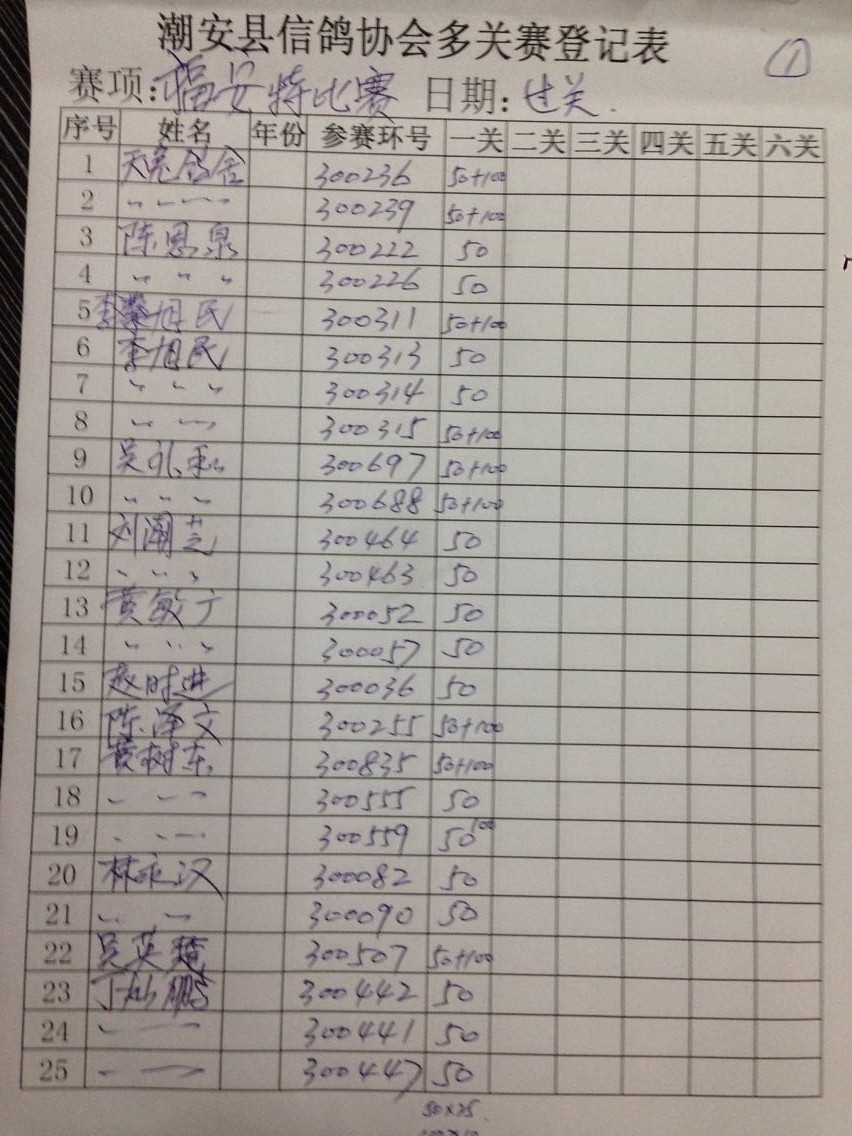 潮安县信鸽协会多关赛登记表
①
赛项:福安特比赛 日期:过关.
序号 姓名 年份 参赛环号 一关 二关 三关 四关 五关 六关
1 天亮鸽舍 300236 50+100
2 〃 〃 〃 〃 300239 50+100
3 陈恩泉 300222 50
4 〃 〃 〃 300226 50
5 李旭民 300311 50+100
6 李旭民 300313 50
7 〃 〃 〃 300314 50
8 〃 〃 〃 300315 50+100
9 吴礼和 300697 50+100
10 〃 〃 〃 300688 50+100
11 刘潮艺 300464 50
12 〃 〃 〃 300463 50
13 黄敏于 300052 50
14 〃 〃 〃 300057 50
15 赵时进 300036 50
16 陈泽文 300255 50+100
17 黄树东 300835 50+100
18 〃 〃 〃 300555 50
19 〃 〃 〃 300559 50 100
20 林永汉 300082 50
21 〃 〃 300090 50
22 吴英楚 300507 50+100
23 丁灿鹏 300442 50
24 〃 〃 300441 50
25 〃 〃 300447 50
50×25